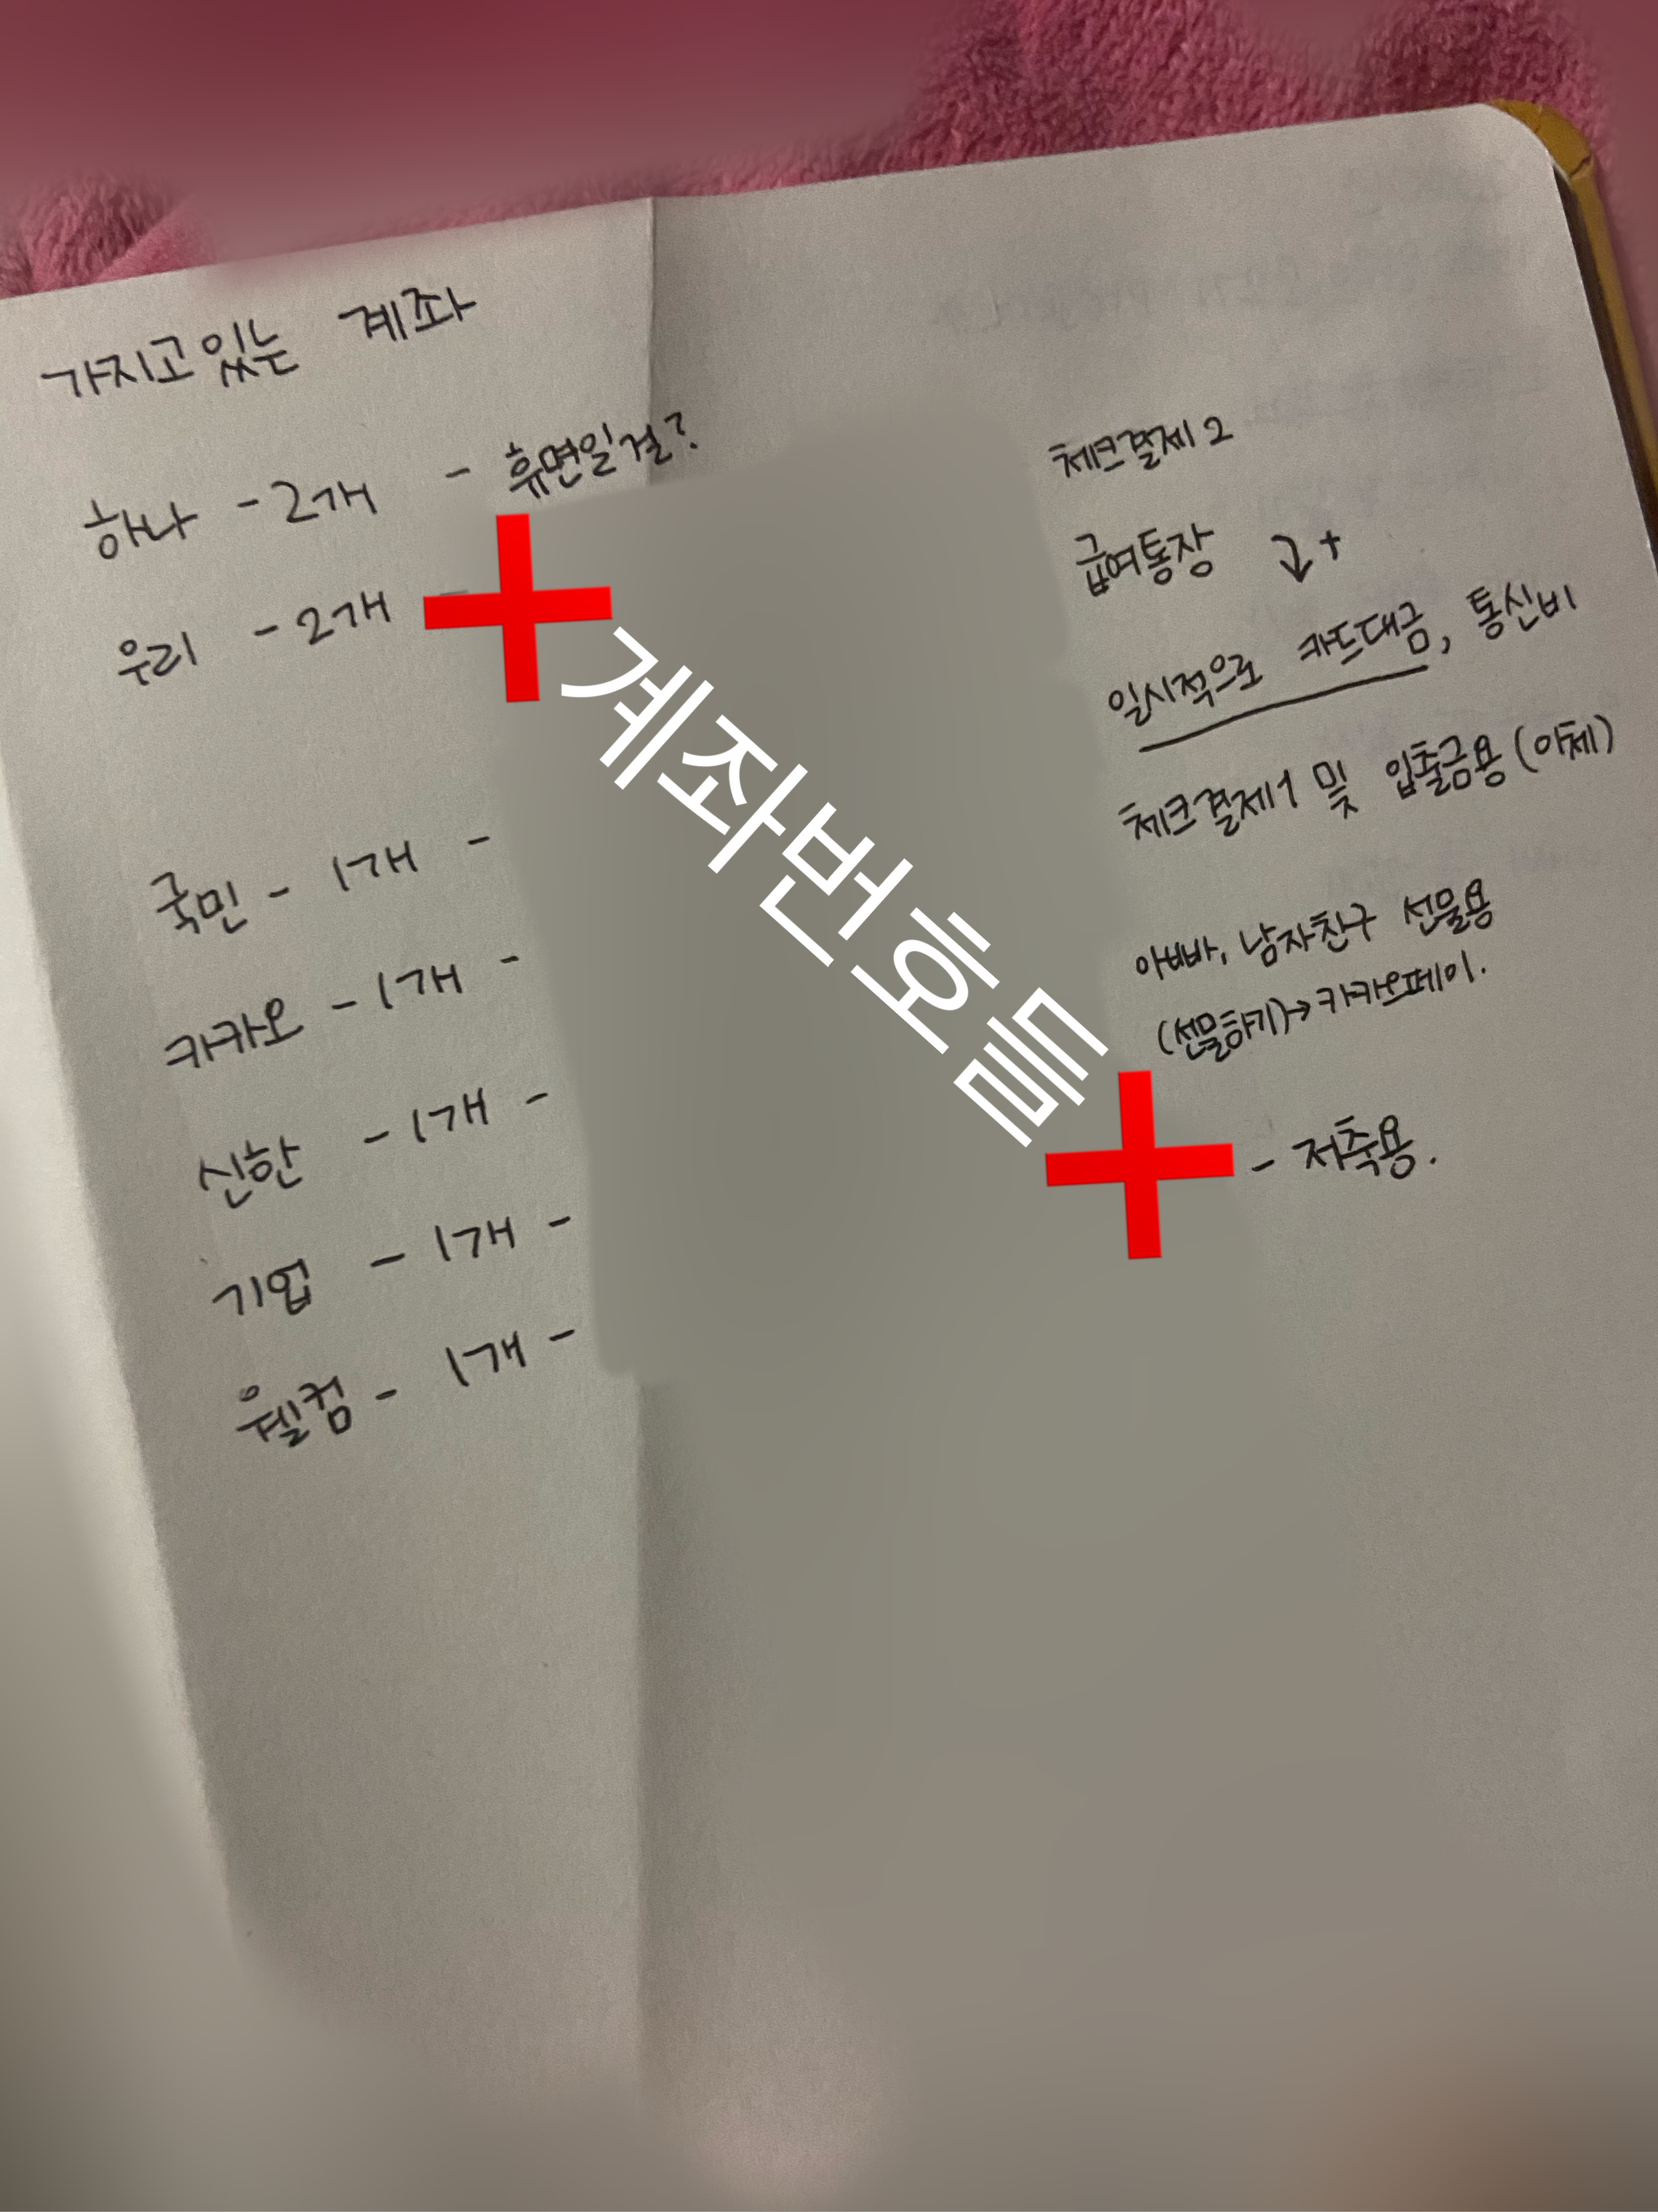 가지고있는 계좌
하나 - 2개 - 휴면일걸?
체크결제 2
우리 - 2개 -
급여통장 ↓+
계좌번호들
일시적으로 카드대금, 통신비
국민 - 1개 -
체크결제1 및 입출금용 (이체)
카카오 - 1개 -
아빠, 남자친구 선물용
(선물하기)→카카오페이.
신한 - 1개 -
- 저축용.
기업 - 1개 -
웰컴 - 1개 -